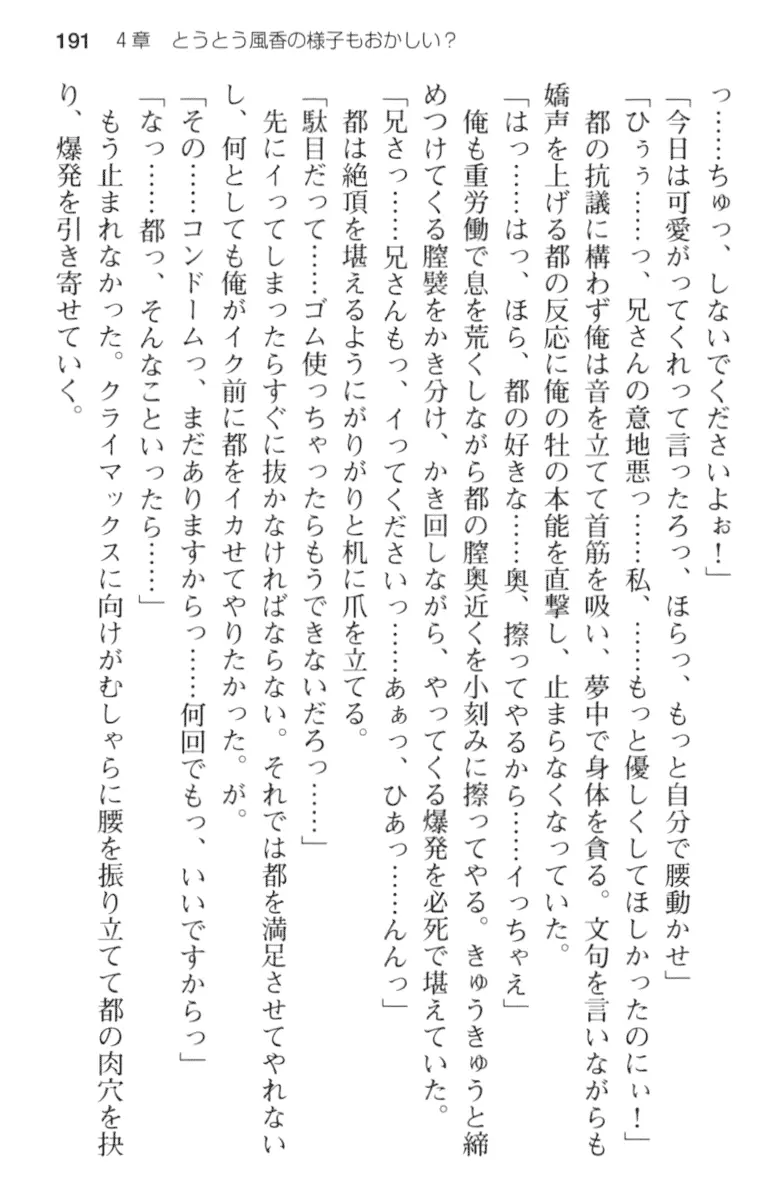 191　4章　とうとう風香の様子もおかしい？
っ……ちゅっ、しないでくださいよぉ！」
「今日は可愛がってくれって言ったろっ、ほらっ、もっと自分で腰動かせ」
「ひぅぅ……っ、兄さんの意地悪っ……私、……もっと優しくしてほしかったのにぃ！」
都の抗議に構わず俺は音を立てて首筋を吸い、夢中で身体を貪る。文句を言いながらも
嬌声を上げる都の反応に俺の牡の本能を直撃し、止まらなくなっていた。
「はっ……はっ、ほら、都の好きな……奥、擦ってやるから……イっちゃえ」
俺も重労働で息を荒くしながら都の膣奥近くを小刻みに擦ってやる。きゅうきゅうと締
めつけてくる膣襞をかき分け、かき回しながら、やってくる爆発を必死で堪えていた。
「兄さっ……兄さんもっ、イってくださいっ……あぁっ、ひあっ……んんっ」
都は絶頂を堪えるようにがりがりと机に爪を立てる。
「駄目だって……ゴム使っちゃったらもうできないだろっ……」
先にイってしまったらすぐに抜かなければならない。それでは都を満足させてやれない
し、何としても俺がイク前に都をイカせてやりたかった。が。
「その……コンドームっ、まだありますからっ……何回でもっ、いいですからっ」
「なっ……都っ、そんなこといったら……」
もう止まれなかった。クライマックスに向けがむしゃらに腰を振り立てて都の肉穴を抉
り、爆発を引き寄せていく。